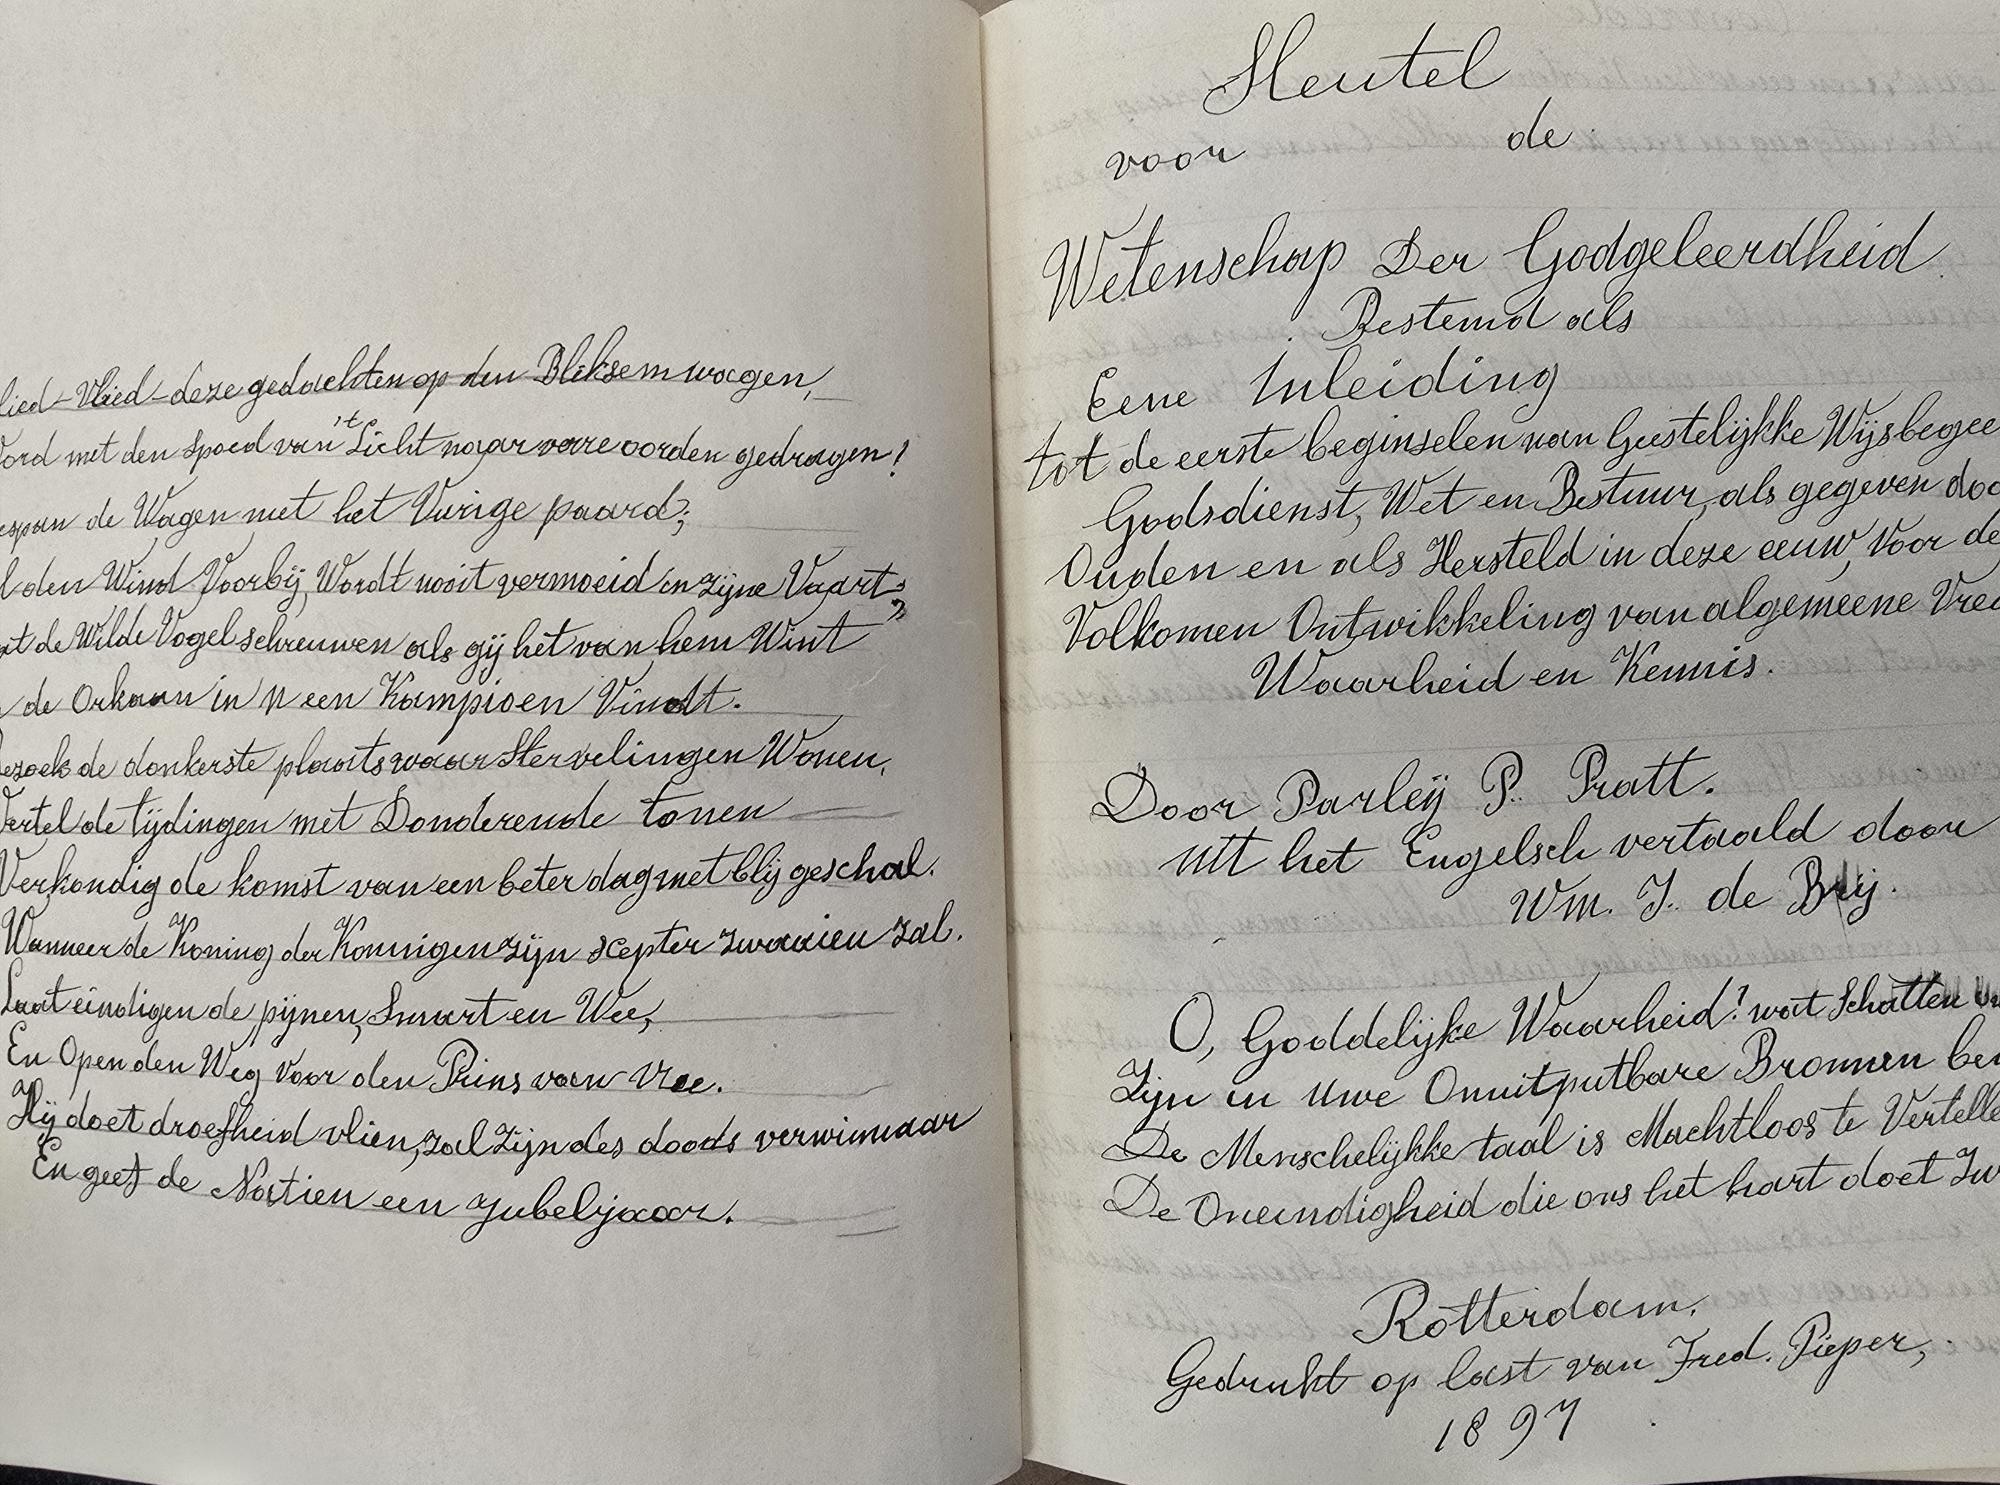 lied - Vlied - deze gedachten op den Bliksemwagen,
Word met den spoed van 't Licht naar verre oorden gedragen!
espan de Wagen met het Vurige paard;
l den Wind Voorbij, Wordt nooit vermoeid in zijne Vaart;
at de Wilde Vogel schreuwen als gij het van hem Wint"
de Orkaan in U een Kampioen Vindt.
Bezoek de donkerste plaats waar Stervelingen Wonen,
Vertel de tijdingen met Donderende tonen
Verkondig de komst van een beter dag met blij geschal.
Wanneer de Koning der Koningen zijn scepter zwaaien zal.
Laat eindigen de pijnen, Smart en Wee,
En Open den Weg Voor den Prins van Vree.
Hij doet droefheid vlien, zal zijn des doods verwinnaar
En geef de Natien een jubeljaar.
Sleutel
voor de
Wetenschap Der Godgeleerdheid
Bestemd als
Eene Inleiding
tot de eerste beginselen van Geestelijkke Wijsbegee
Godsdienst, Wet en Bestuur, als gegeven doo
Ouden en als Hersteld in deze eeuw, Voor de
Volkomen Ontwikkeling van algemeene Vred
Waarheid en Kennis.
Door Parleÿ P. Pratt.
uit het Engelsch vertaald door
Wm. J. de Brij.
O, Goddelijke Waarheid! wat Schatten
Zijn in Uwe Onuitputbare Bronnen be
De Menschelijkke taal is Machtloos te Vertelle
De Oneindigheid die ons het hart doet Zw
Rotterdam.
Gedrukt op last van Fred. Pieper,
1897